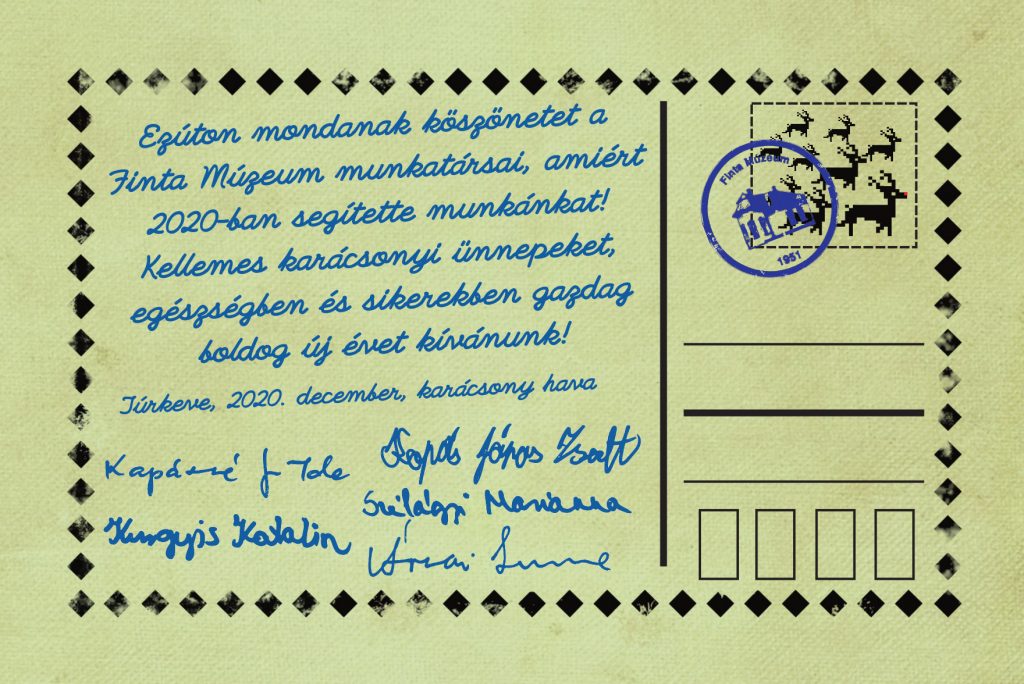 Ezúton mondanak köszönetet a
Finta Múzeum munkatársai, amiért
2020-ban segítette munkánkat!
Kellemes karácsonyi ünnepeket,
egészségben és sikerekben gazdag
boldog új évet kívánunk!
Túrkeve, 2020. december, karácsony hava
Finta Múzeum
1951
Kapásné
Ide
János Zsolt
Szilágyi Marianna
Katalin